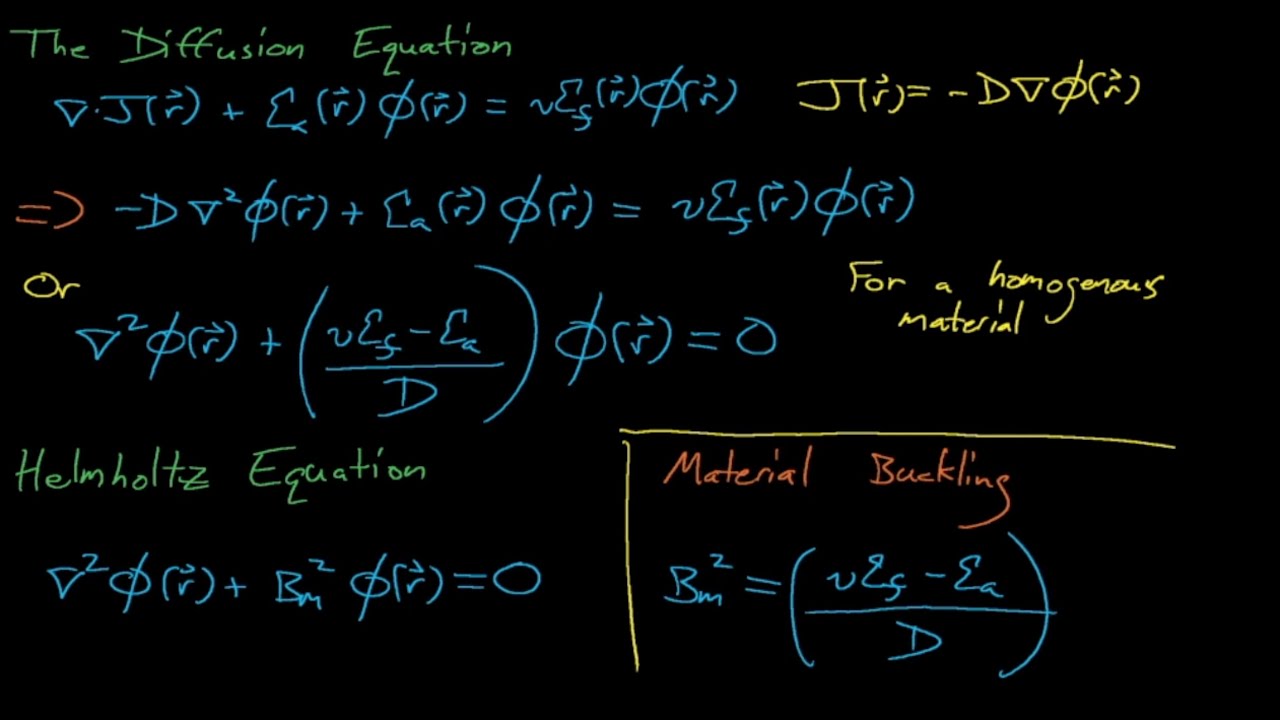 The Diffusion Equation
∇·J(r⃗) + Σₐ(r⃗) ϕ(r⃗) = νΣ_f(r⃗)ϕ(r⃗)   J(r⃗) = -D∇ϕ(r⃗)
⇒ -D∇²ϕ(r⃗) + Σₐ(r⃗) ϕ(r⃗) = νΣ_f(r⃗)ϕ(r⃗)
Or
For a homogenous
material
∇²ϕ(r⃗) + ( (νΣ_f - Σₐ) / D ) ϕ(r⃗) = 0
Helmholtz Equation
∇²ϕ(r⃗) + Bₘ² ϕ(r⃗) = 0
Material Buckling
Bₘ² = ( (νΣ_f - Σₐ) / D )